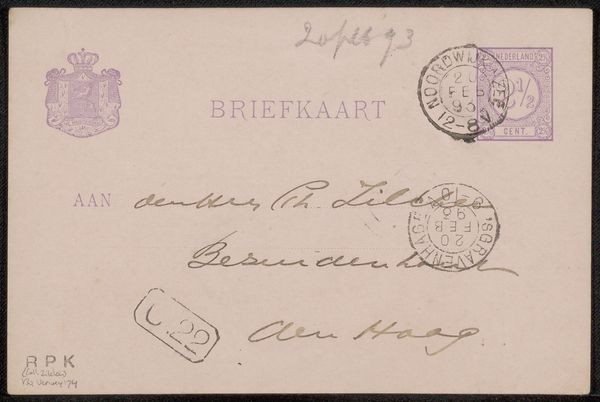 2 Feb 93
BRIEFKAART
NEDERLAND
2½
CENT.
NOORDWIJK AAN ZEE
20
FEB
93
12-8V
AAN den Heer Ph. Zilcken
'S GRAVENHAGE
20
FEB
93
Bezuidenhout
den Haag
C.22
RPK
(coll. Zilcken)